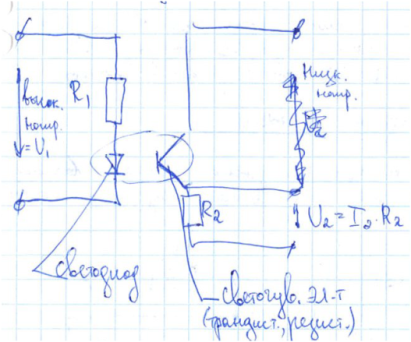 высок.
напр.
= U₁
R₁
Низк.
напр.
R₂
U₂ = I₂ · R₂
Светодиод
Светочув. эл-т
(транзист., резист.)